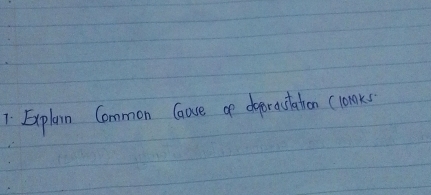 1. Explain Common Cause of deforastation (10mks.